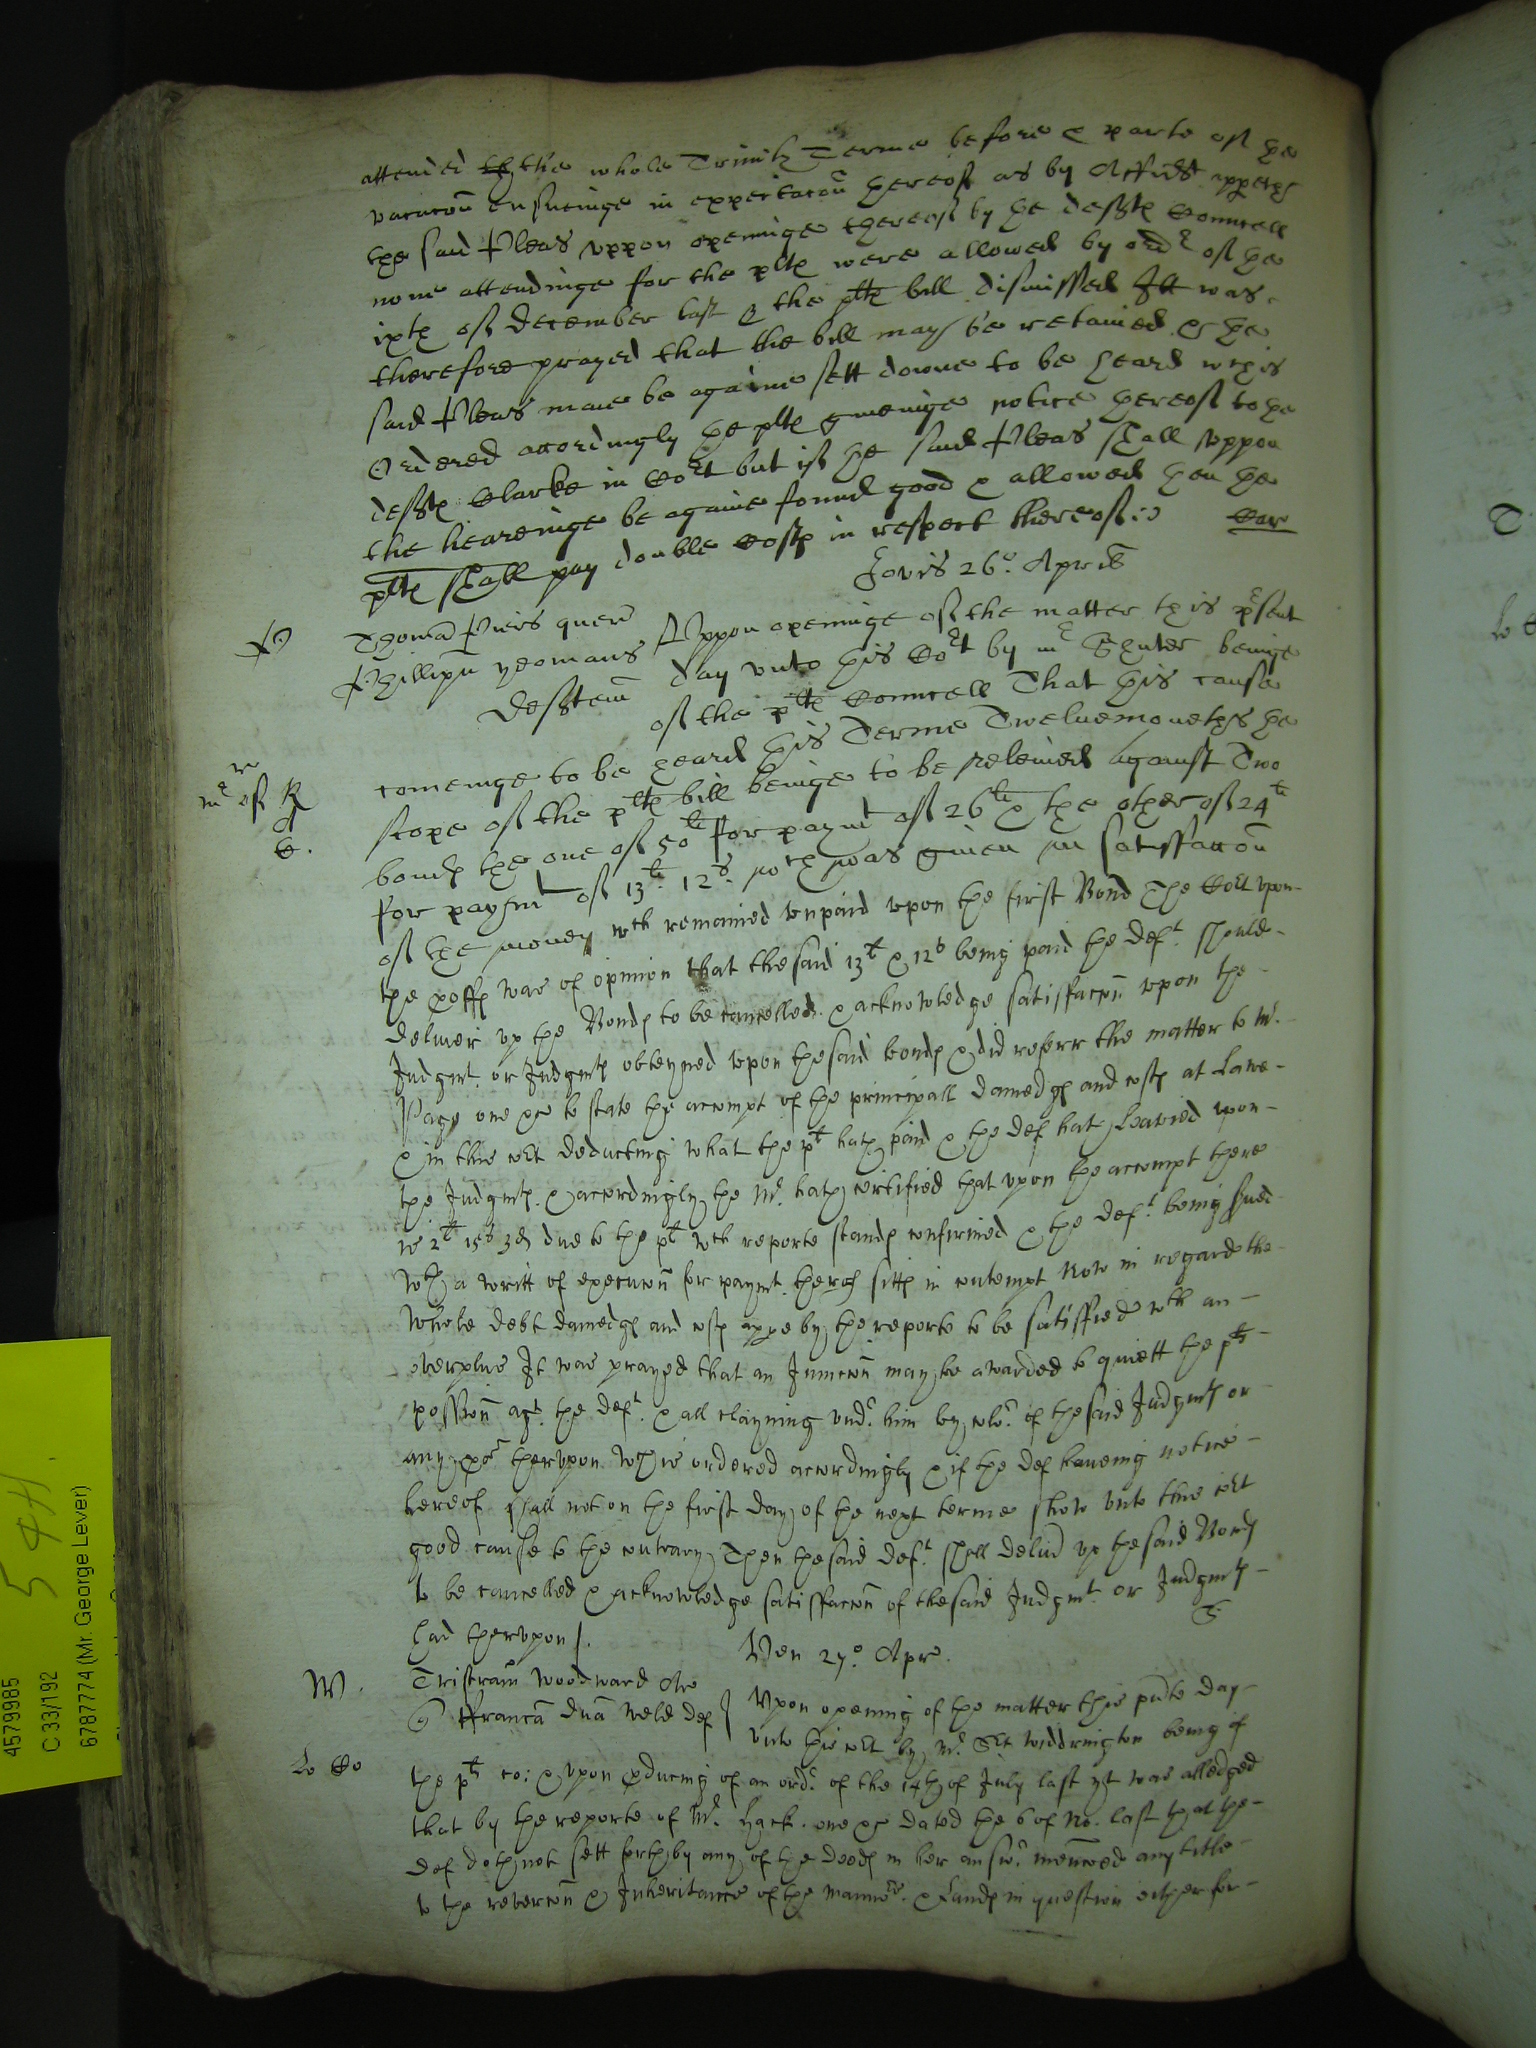 attended the whole Trinity Terme before & parte of the
vacacon ensueinge in expectacon thereof as by Affidt appeareth
the said Pleas uppon openinge thereof by the defftes Councell
none attendinge for the pltes were allowed by ordr of the
ixth of December last & the pltes bill dismissed Itt was
therefore prayed that the bill may be retained & the
said Pleas maie be againe sett downe to be heard wch is
Ordered accordingly the pltes giueinge notice hereof to the
defftes Clarke in Cort but if the said Pleas shall uppon
the heareinge be againe found good & allowed then the
pltes shall pay double Costes in respect thereof
Jovis 26o. Aprilis
Thomas Piers quer
Phillipus yeomans
Defftem
Uppon openinge of the matter this present
day unto this Cort by mr Shuter beinge
of the pltes Councell That this cause
comeinge to be heard this Terme Twelvemonethes the
scope of the pltes bill beinge to be releived against Two
bondes the one of 50li for paymt of 26li & the other of 24li
for paymt of 13li. 12s. wch was given in satisfaccon
of the money wch remained unpaid upon the first Bond The Cort upon
the proffes was of opinion that the said 13li & 12s being paid the deft. should
deliuer up the Bondes to be cancelled & acknowledge satisfaccon upon the
Judgmt. or Judgmtes obteyned upon the said bondes & did referr the matter to Mr.
Page one &c to state the accompt of the principall damedges and costes at Lawe
& in this cort deducting what the plt hath paid & the def hath leavied upon
the Judgmtes. & accordingly the Mr. hath certified that upon the accompt there
is 2li 15s 3d due to the plt wch reporte standes confirmed & the deft. being served
wth a writt of execucon for paymt. therof sittes in contempt Now in regard the
whole debt damedges and costes appe by the reporte to be satisfied wth an
overplus It was prayed that an Juncon may be awarded to quiett the pltes
possession agt. the deft. & all clayming undr. him by colr. of the said Judgmtes or
any thervpon wch is ordered accordingly & if the def haveing notice
hereof shall not on the first day of the next terme shew unto this cort
good cause to the contrary Then the said deft. shall deliuer up the said Bondes
to be cancelled & acknowledge satisfaccon of the said Judgmt. or Judgmtes
had thervpon
Ven 27o. Apr.
W.
Tristram Woodward Ar
Franca dna Weld def
Upon opening of the matter this pnte day
unto this cort by Mr. Sct Widdrington being of
the pltes co: & upon producing of an ordr. of the 14th of July last yt was alledged
that by the reporte of Mr. Hack. one &c dated the 6 of No. last that the
def doth not sett forth by any of the deedes in her answr. mencoed any title
to the revercon & Inheritance of the mannors. & Landes in question either for
541.
4579985
C 33/192
6787774 (Mr. George Lever)